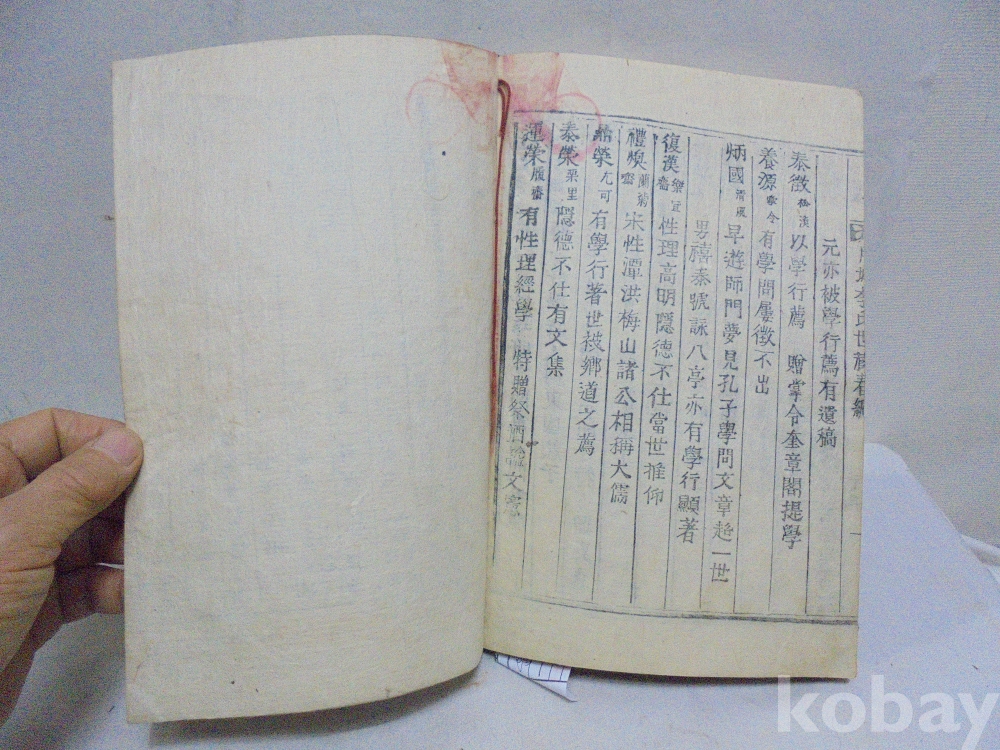 元亦被學行薦有遺稿
泰徵 以學行薦 贈掌令奎章閣提學
養源 有學問屢徵不出
炳國 早遊師門夢見孔子學問文章 一世
男禧泰號詠八亭亦有學行顯著
復漢 性理高明隱德不仕當世推仰
禮煥 宋性潭洪梅山諸公相稱大儒
鼎榮 尤可 有學行著世被鄉道之薦
泰榮 栗里 隱德不仕有文集
運榮 有性理經學 特贈祭 文
kobay